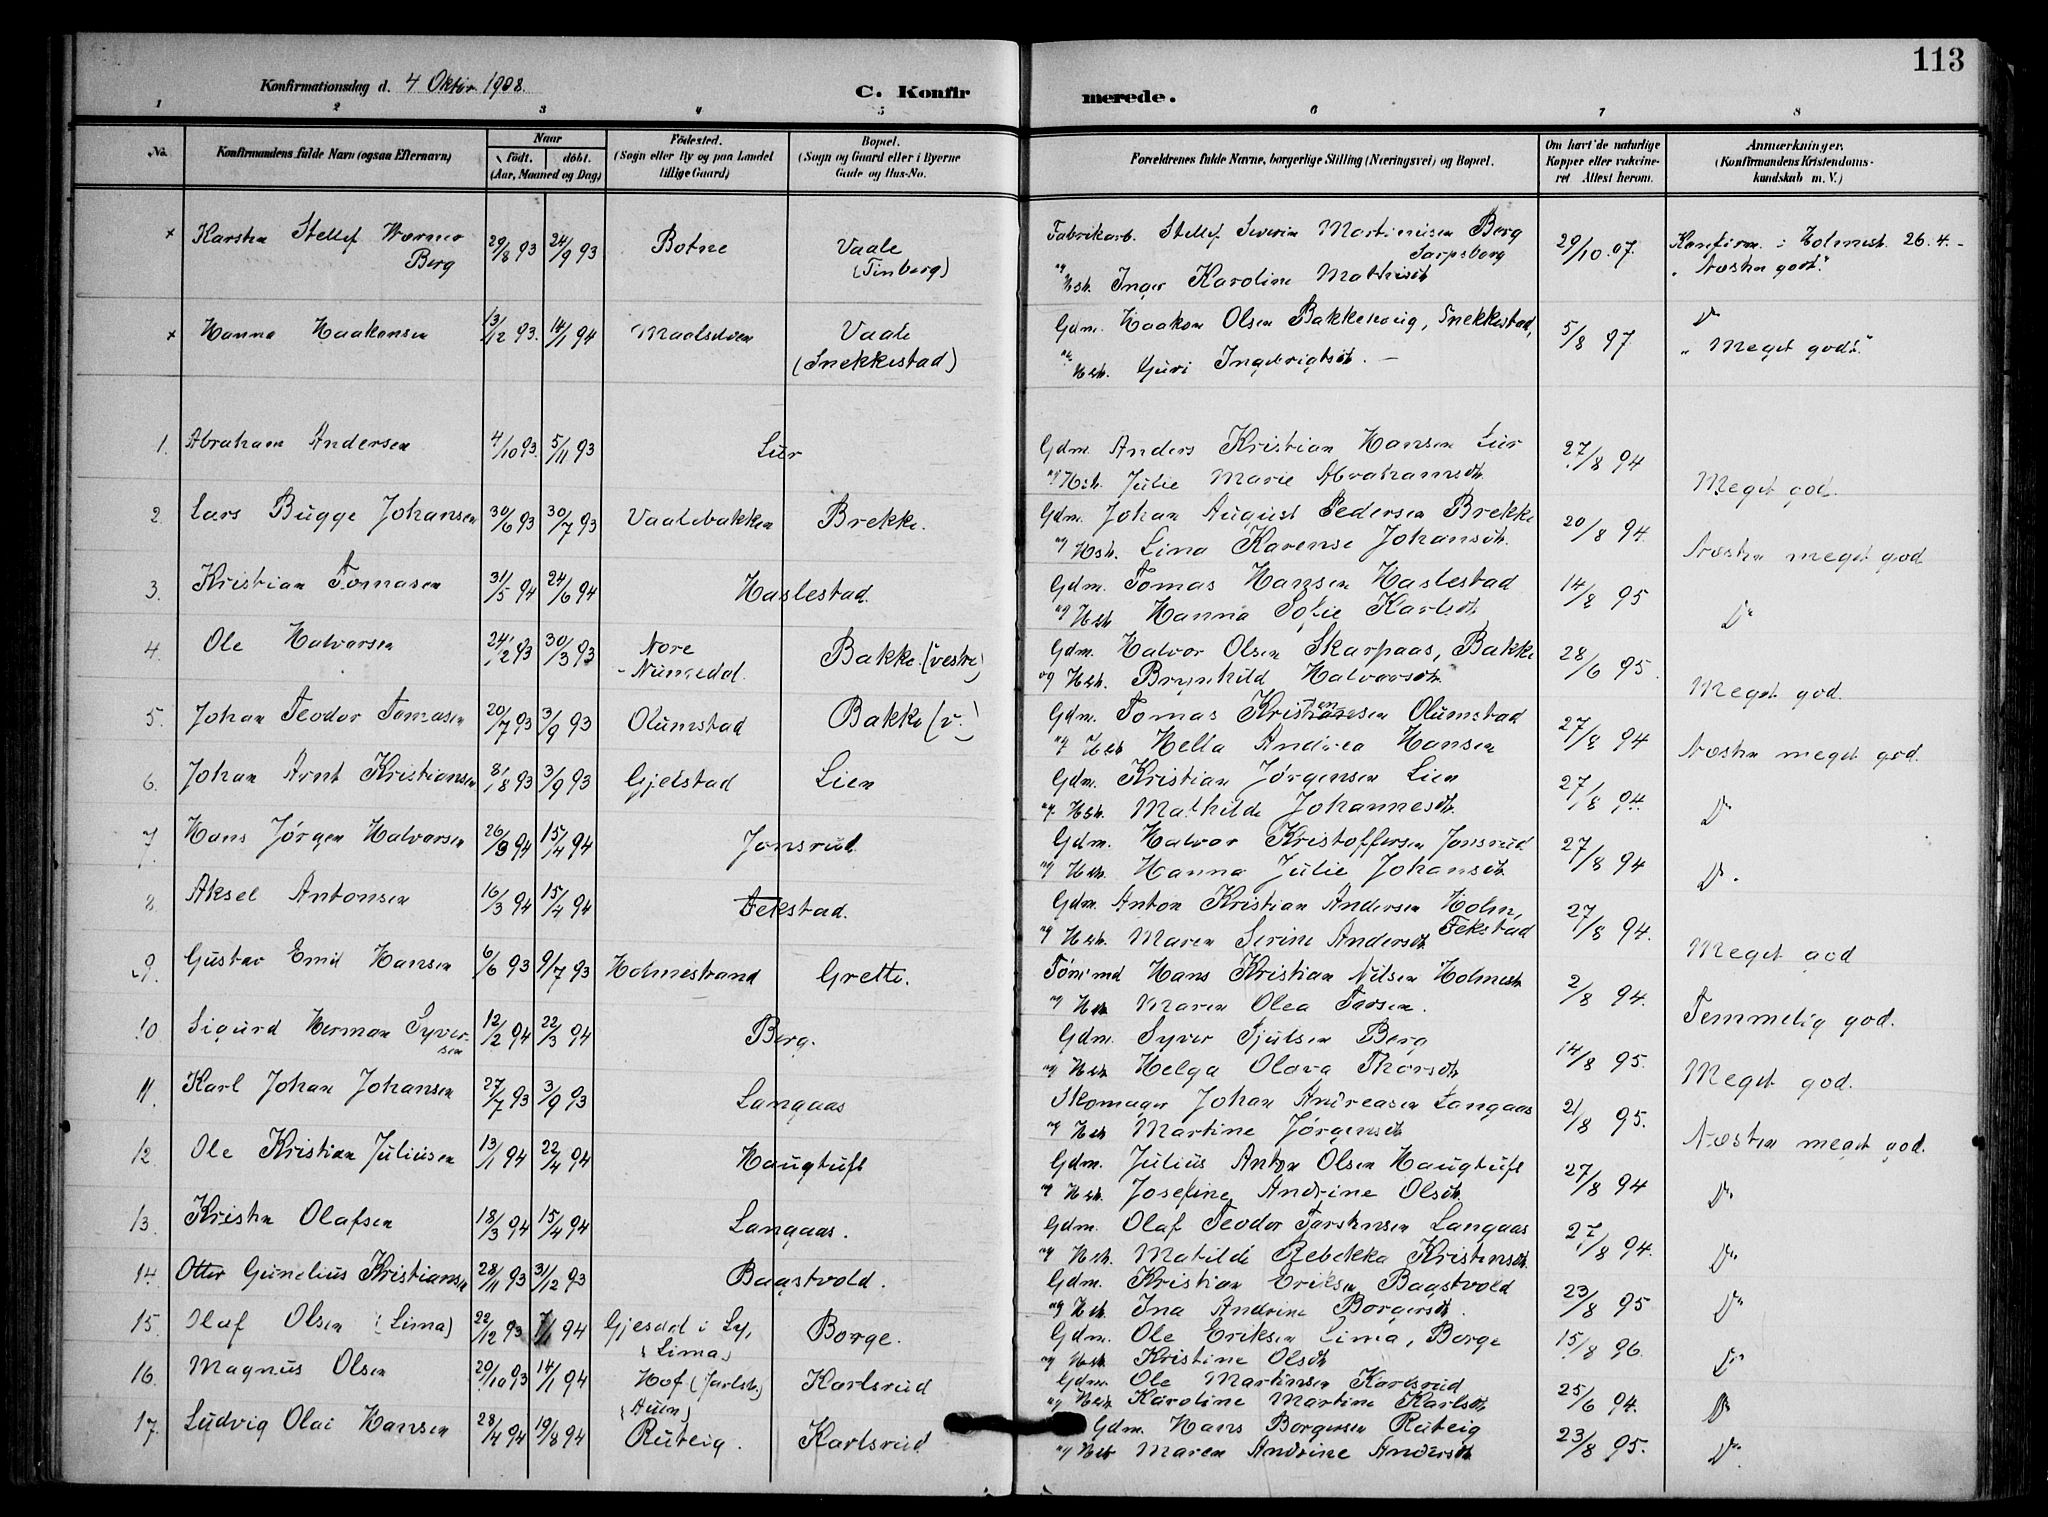 113
Konfirmationsdag d. 4 Oktbr. 1908.
C. Konfirmerede.
1 2 3 4 5 6 7 8
No. Konfirmandens fulde Navn (ogsaa Efternavn) Naar födt. döbt. (Aar, Maaned og Dag) Födested. (Sogn eller By og paa Landet tillige Gaard) Bopæl. (Sogn og Gaard eller i Byerne Gade og Hus-No. Forældrenes fulde Navne, borgerlige Stilling (Næringsvei) og Bopæl. Om havt de naturlige Kopper eller vakcineret Attest herom. Anmærkninger. (Konfirmandens Kristendomskundskab m. V.)
x Karsten Stellef Werner Berg 29/8 93 24/9 93 Botne Vaale (Tinberg) Fabrikarb. Stellef Severin Martinusen Berg Sarpsborg 29/10 07. Konfirm. i Holmest. 26.4.
og Hst. Inger Karoline Mathisdt. "Næsten godt."
x Hanna Haakonsen 13/12 93. 14/1 94 Maalselven Vaale (Snekkestad) Gdm. Haakon Olsen Bakkehaug, Snekkestad, 5/8 97 Do
og Hst. Guri Ingebrigtsdt. "Meget godt."
1. Abraham Andersen 4/10 93. 5/11 93 Lur Gdm. Anders Kristian Hansen Lur 27/8 94
og Hst. Julie Marie Abrahamsdt. Meget god
2. Lars Bugge Johansen 30/6 93 30/7 93 Vaalebakken Brekke. Gdm. Johan August Pedersen Brekke 20/8 94.
og Hst. Lina Karense Johansdt. Næsten meget god
3. Kristian Tomasen 31/5 94 24/6 94 Haslestad. Gdm. Tomas Hansen Haslestad 14/8 95
og Hst. Hanna Sofie Karlsdt. Do
4. Ole Halvorsen 24/2 93 30/3 93 Nore Numedal. Bakke. (vestre) Gdm. Halvor Olsen Skarpaas, Bakke 28/6 95.
og Hst. Brynhild Halvorsdt. Meget god.
5. Johan Teodor Tomasen 20/7 93 3/9 93 Olumstad Bakke (v.) Gdm. Tomas Kristensen Olumstad 27/8 94
og Hst Hella Andrea Hansen Næsten meget god.
6. Johan Arnt Kristiansen 8/8 93 3/9 93 Gjelstad Lien Gdm. Kristian Jørgensen Lien 27/8 94.
og Hst. Mathilde Johannesdt. Do
7. Hans Jørgen Halvorsen 26/3 94 15/4 94 Jonsrud. Gdm. Halvor Kristoffersen Jonsrud 27/8 94
og Hst. Hanna Julie Johansdt Do.
8. Aksel Antonsen 16/3 94 15/4 94 Fekstad. Gdm. Anton Kristian Andersen Holm, Fekstad 27/8 94.
og Hst. Maren Serine Andersdt Meget god
9. Gustav Emil Hansen 6/6 93 9/7 93 Holmestrand Grette. Tømmd Hans Kristian Nilsen Holmest. 2/8 94.
og Hst Maren Olea Torsen. Temmelig god.
10 Sigurd Herman Syversen 12/2 94 22/3 94 Berg. Gdm. Syver Sjulsen Berg 14/8 95.
og Hst Helga Olava Thorsdt Meget god.
11. Karl Johan Johansen 27/7 93 3/9 93 Langaas Skomager Johan Andreasen Langaas 21/8 95.
og Hst Martine Jørgensdt Næsten meget god.
12. Ole Kristian Juliusen 13/1 94 22/4 94 Haugtuft Gdm. Julius Anton Olsen Haugtuft 27/8 94
og Hst. Josefine Andrine Olsdt. Do.
13. Kristen Olafsen 18/3 94 15/4 94 Langaas. Gdm. Olaf Teodor Torstensen Langaas 27/8 94.
og Hst. Matilde Rebekka Kristensdt. Do
14. Otter Gunelius Kristiansen 28/11 93 31/12 93 Baastvold. Gdm. Kristian Eriksen Baastvold 23/8 95
og Hst. Ina Andrine Borgersdt. Do
15. Olaf Olsen (Lima) 22/12 93 7/1 94 Gjesdal i Ly, (Lima) Borge. Gdm. Ole Eriksen Lima, Borge 15/8 96.
og Hst. Kristine Olsdt Do
16. Magnus Olsen 20/10 93 14/1 94 Hof (Jarlsb.) Karlsrud Gdm. Ole Martinsen Karlsrud 25/6 94.
og Hst Karoline Martine Karlsdt Do
17. Ludvig Olai Hansen 28/4 94 19/8 94 Ruteig. Karlsrud Gdm. Hans Borgersen Ruteig 23/8 95.
og Hst Maren Andrine Andersdt Do.